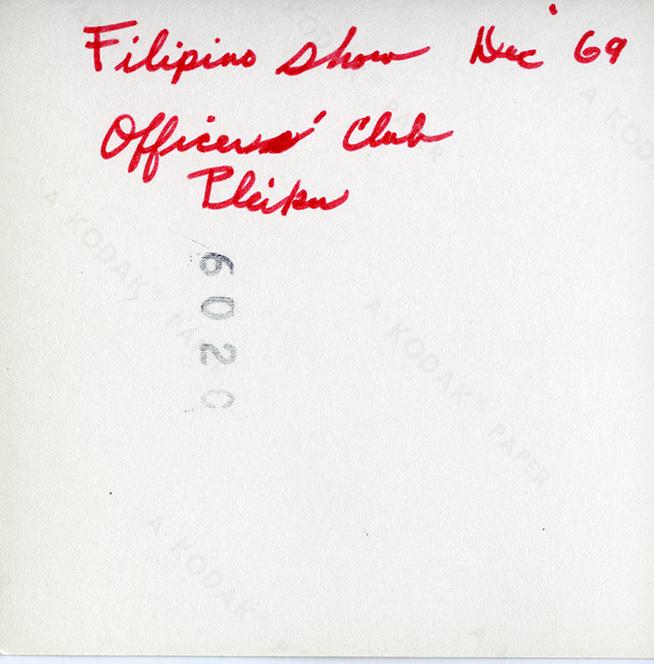 Filipino Show Dec '69
Officers' Club
Pleiku
602C
A KODAK® PAPER
A KODAK® PAPER
A KODAK® P